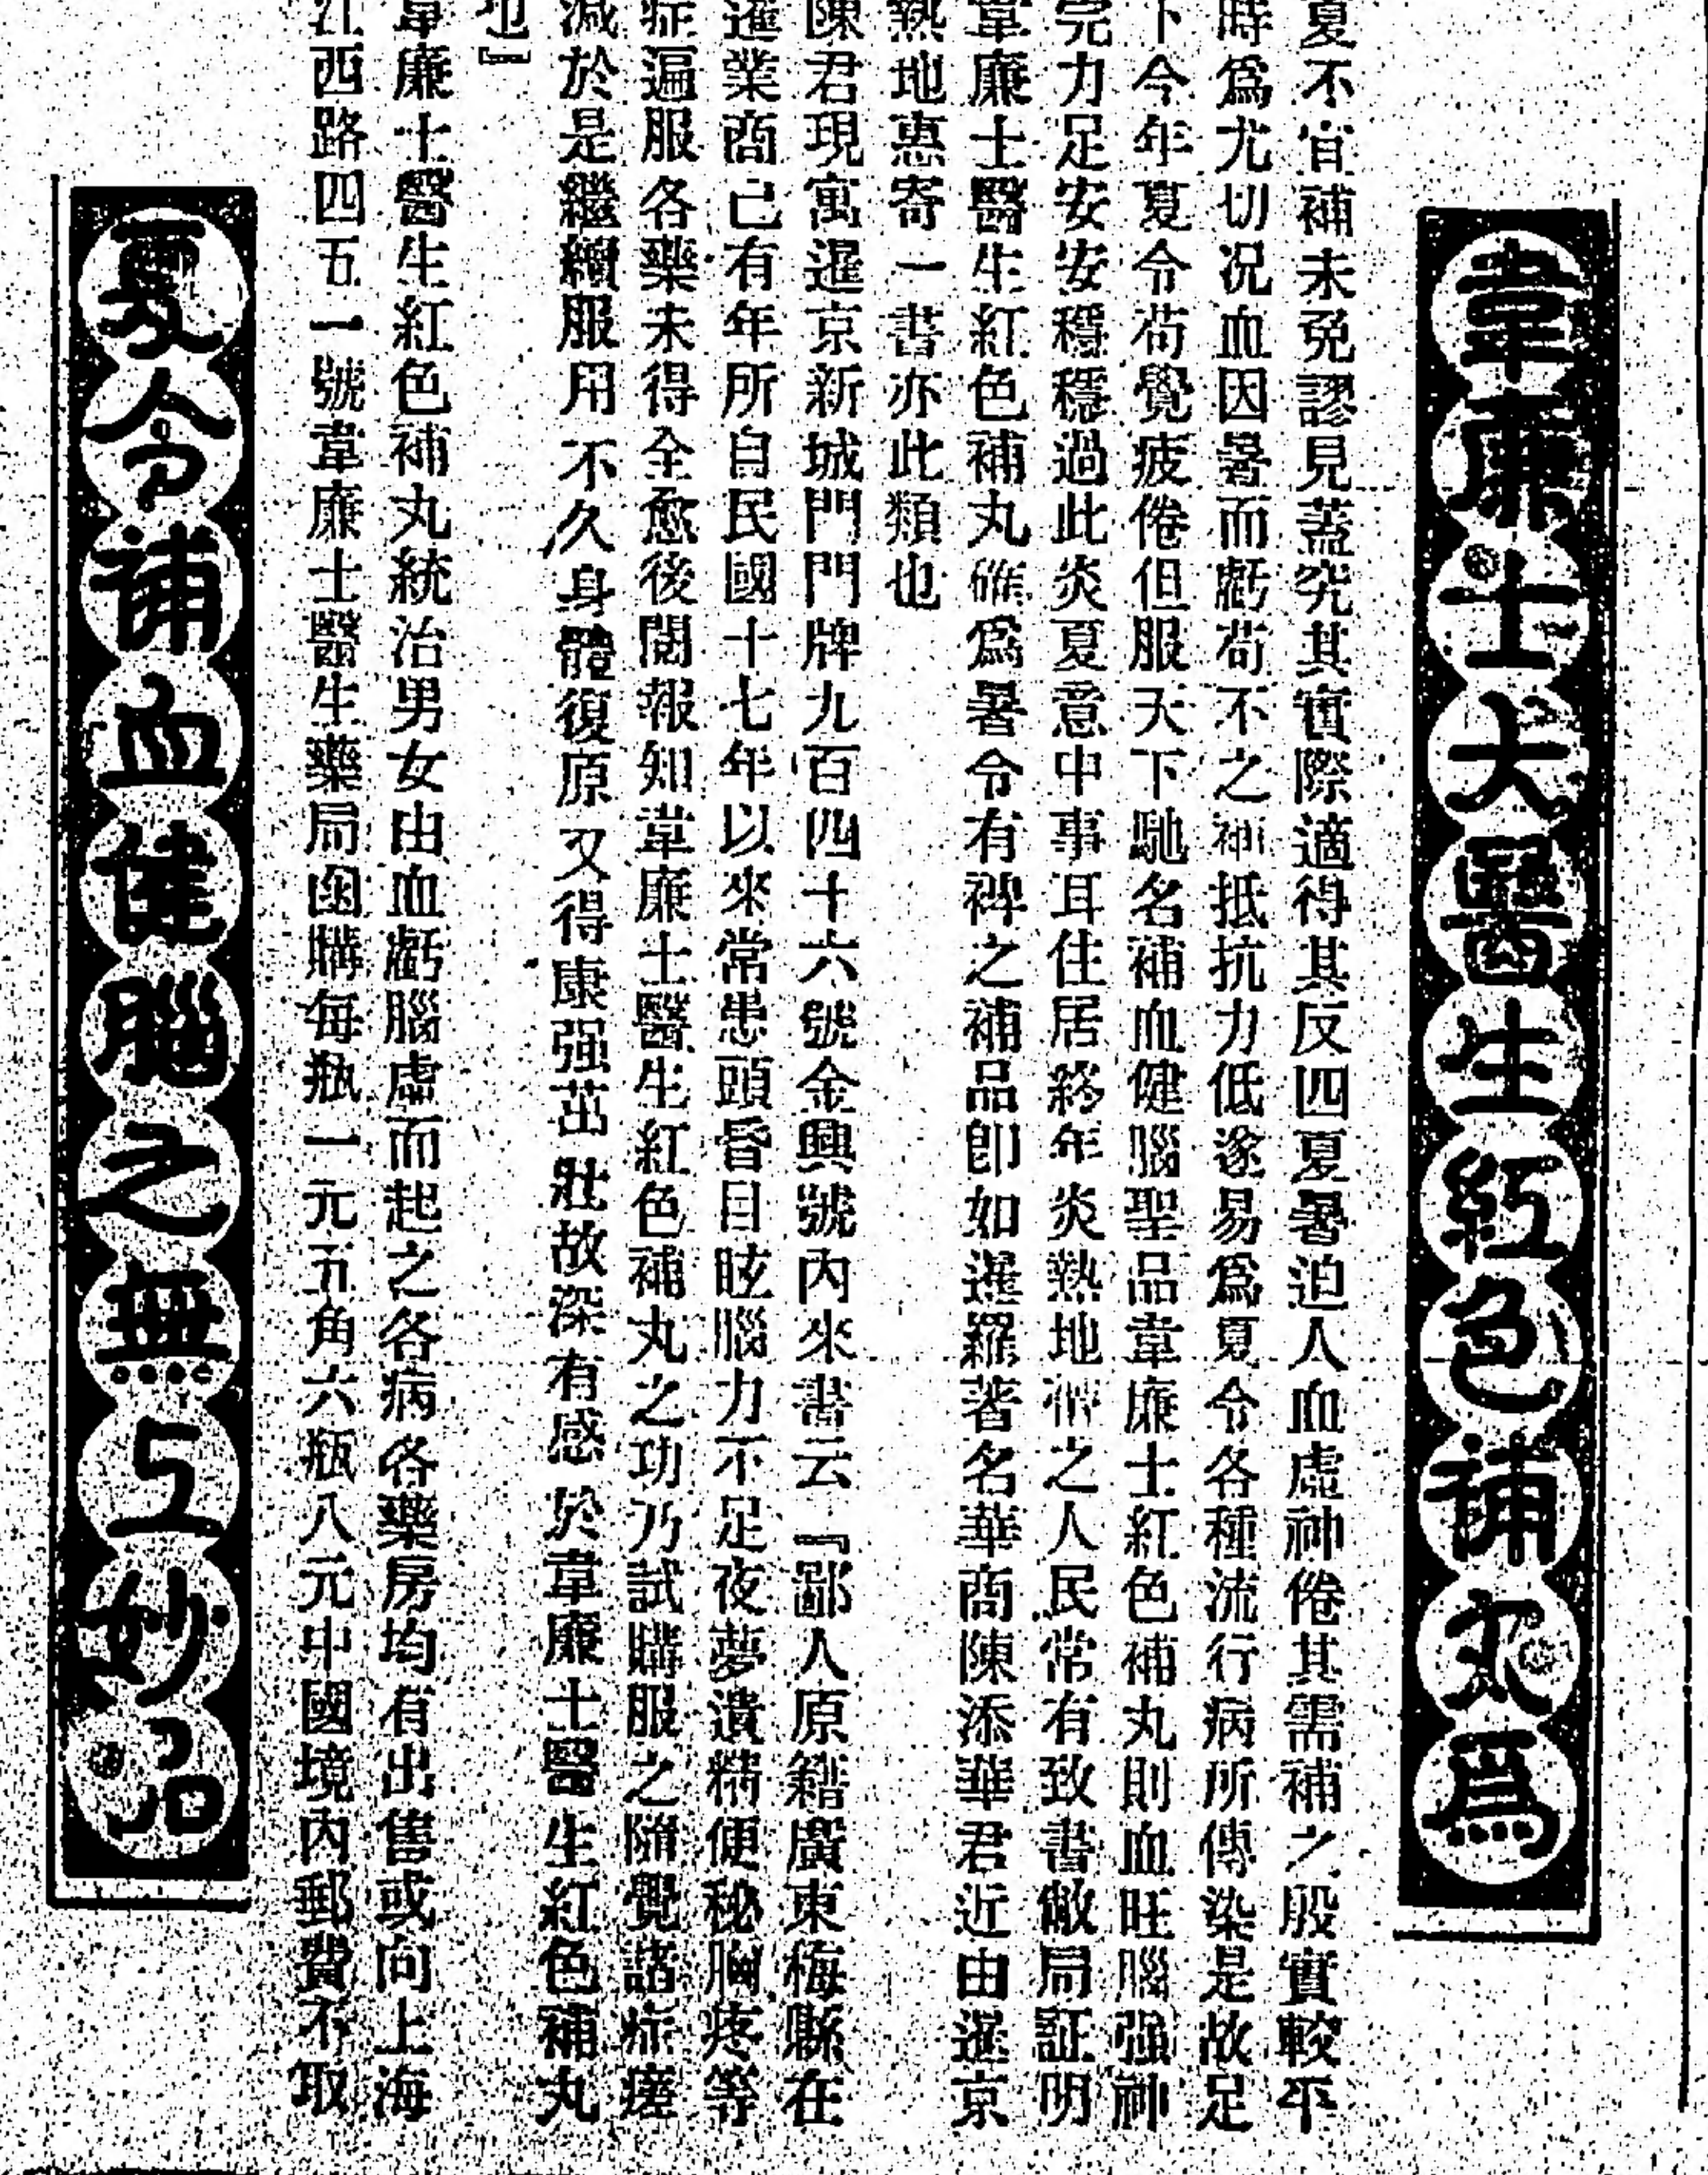 韋廉士大醫生紅色補丸爲
夏不宜補未免謬見蓋究其實際適得其反四夏暑迫人血虛神倦其需補之殷實較平
時爲尤切况血因暑而虧苟不之神抵抗力低遂易爲夏令各種流行病所傳染是故足
下今年夏令苟覺疲倦但服天下馳名補血健腦聖品韋廉士紅色補丸則血旺腦强神
完力足安安穩穩過此炎夏意中事耳住居終年炎熱地帶之人民常有致書敝局証明
韋廉士醫生紅色補丸確爲暑令有裨之補品卽如暹羅著名華商陳添華君近由暹京
熱地惠寄一書亦此類也
陳君現寓暹京新城門門牌九百四十六號金興號內來書云『鄙人原籍廣東梅縣在
暹業商已有年所自民國十七年以來常患頭昏目眩腦力不足夜夢遺精便秘胸疼等
症遍服各藥未得全愈後閱報知韋廉士醫生紅色補丸之功乃試購服之隨覺諸症瘥
減於是繼續服用不久身體復原又得康强茁壯故深有感於韋廉士醫生紅色補丸
也』
韋廉士醫生紅色補丸統治男女由血虧腦虛而起之各病各藥房均有出售或向上海
江西路四五一號韋廉士醫生藥局函購每瓶一元五角六瓶八元中國境內郵費不取
夏令補血健腦之無上妙品